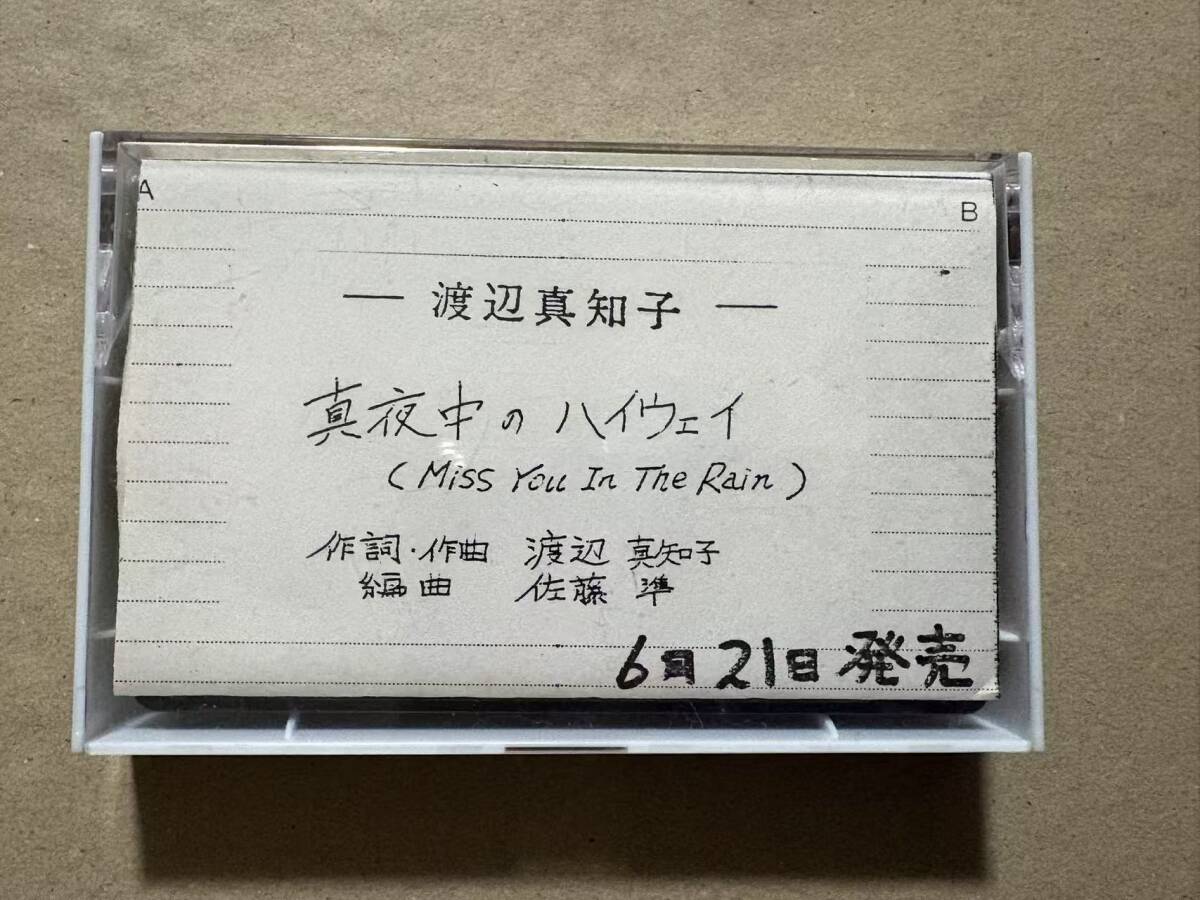 A
B
― 渡辺真知子 ―
真夜中の ハイウェイ
(Miss You In The Rain)
作詞・作曲 渡辺 真知子
編曲 佐藤 準
6月21日発売